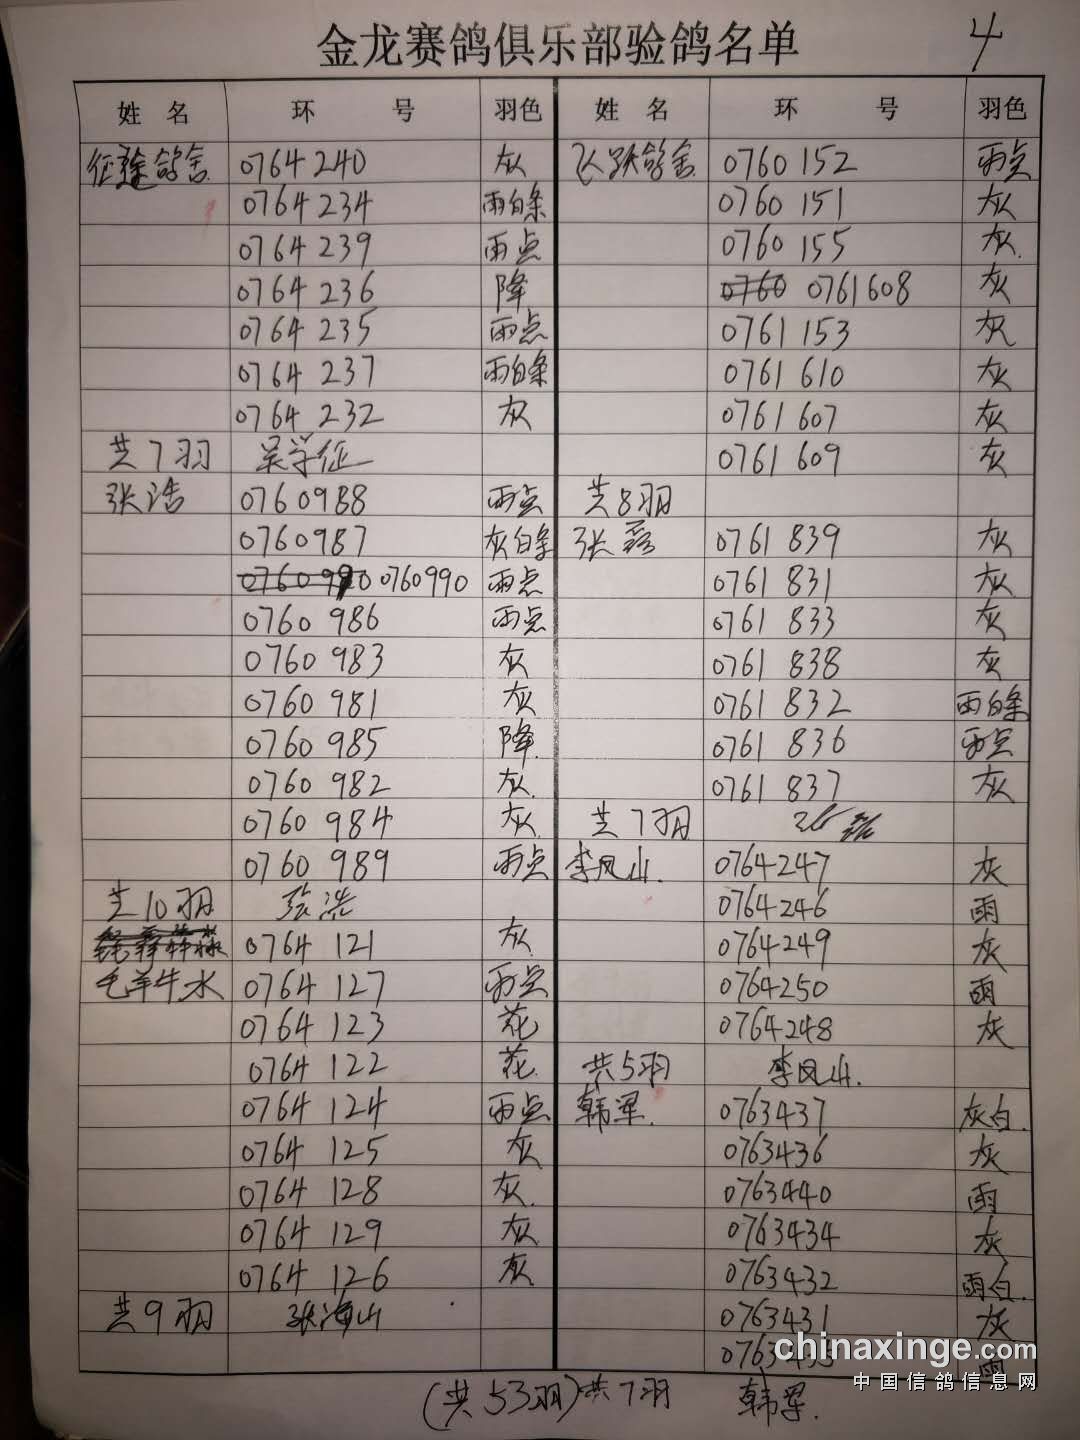 金龙赛鸽俱乐部验鸽名单
4
姓 名 环 号 羽色 姓 名 环 号 羽色
征途鸽舍 0764240 灰 飞跃鸽舍 0760152 雨点
0764234 雨白条 0760151 灰
0764239 雨点 0760155 灰
0764236 降 0760 0761608 灰
0764235 雨点 0761153 灰
0764237 雨白条 0761610 灰
0764232 灰 0761607 灰
共7羽 吴学征 0761609 灰
张浩 0760988 雨点 共8羽
0760987 灰白条 张磊 0761839 灰
0760990 雨点 0761831 灰
0760986 雨点 0761833 灰
0760983 灰 0761838 灰
0760981 灰 0761832 雨白条
0760985 降 0761836 雨点
0760982 灰 0761837 灰
0760984 灰 共7羽
0760989 雨点 李凤山 0764247 灰
共10羽 张浩 0764246 雨
0764121 灰 0764249 灰
毛羊牛水 0764127 雨点 0764250 雨
0764123 花 0764248 灰
0764122 花 共5羽 李凤山
0764124 雨点 韩军 0763437 灰白
0764125 灰 0763436 灰
0764128 灰 0763440 雨
0764129 灰 0763434 灰
0764126 灰 0763432 雨白
共9羽 张海山 0763431 灰
雨
(共53羽)共7羽 韩军
chinaxinge.com
中国信鸽信息网